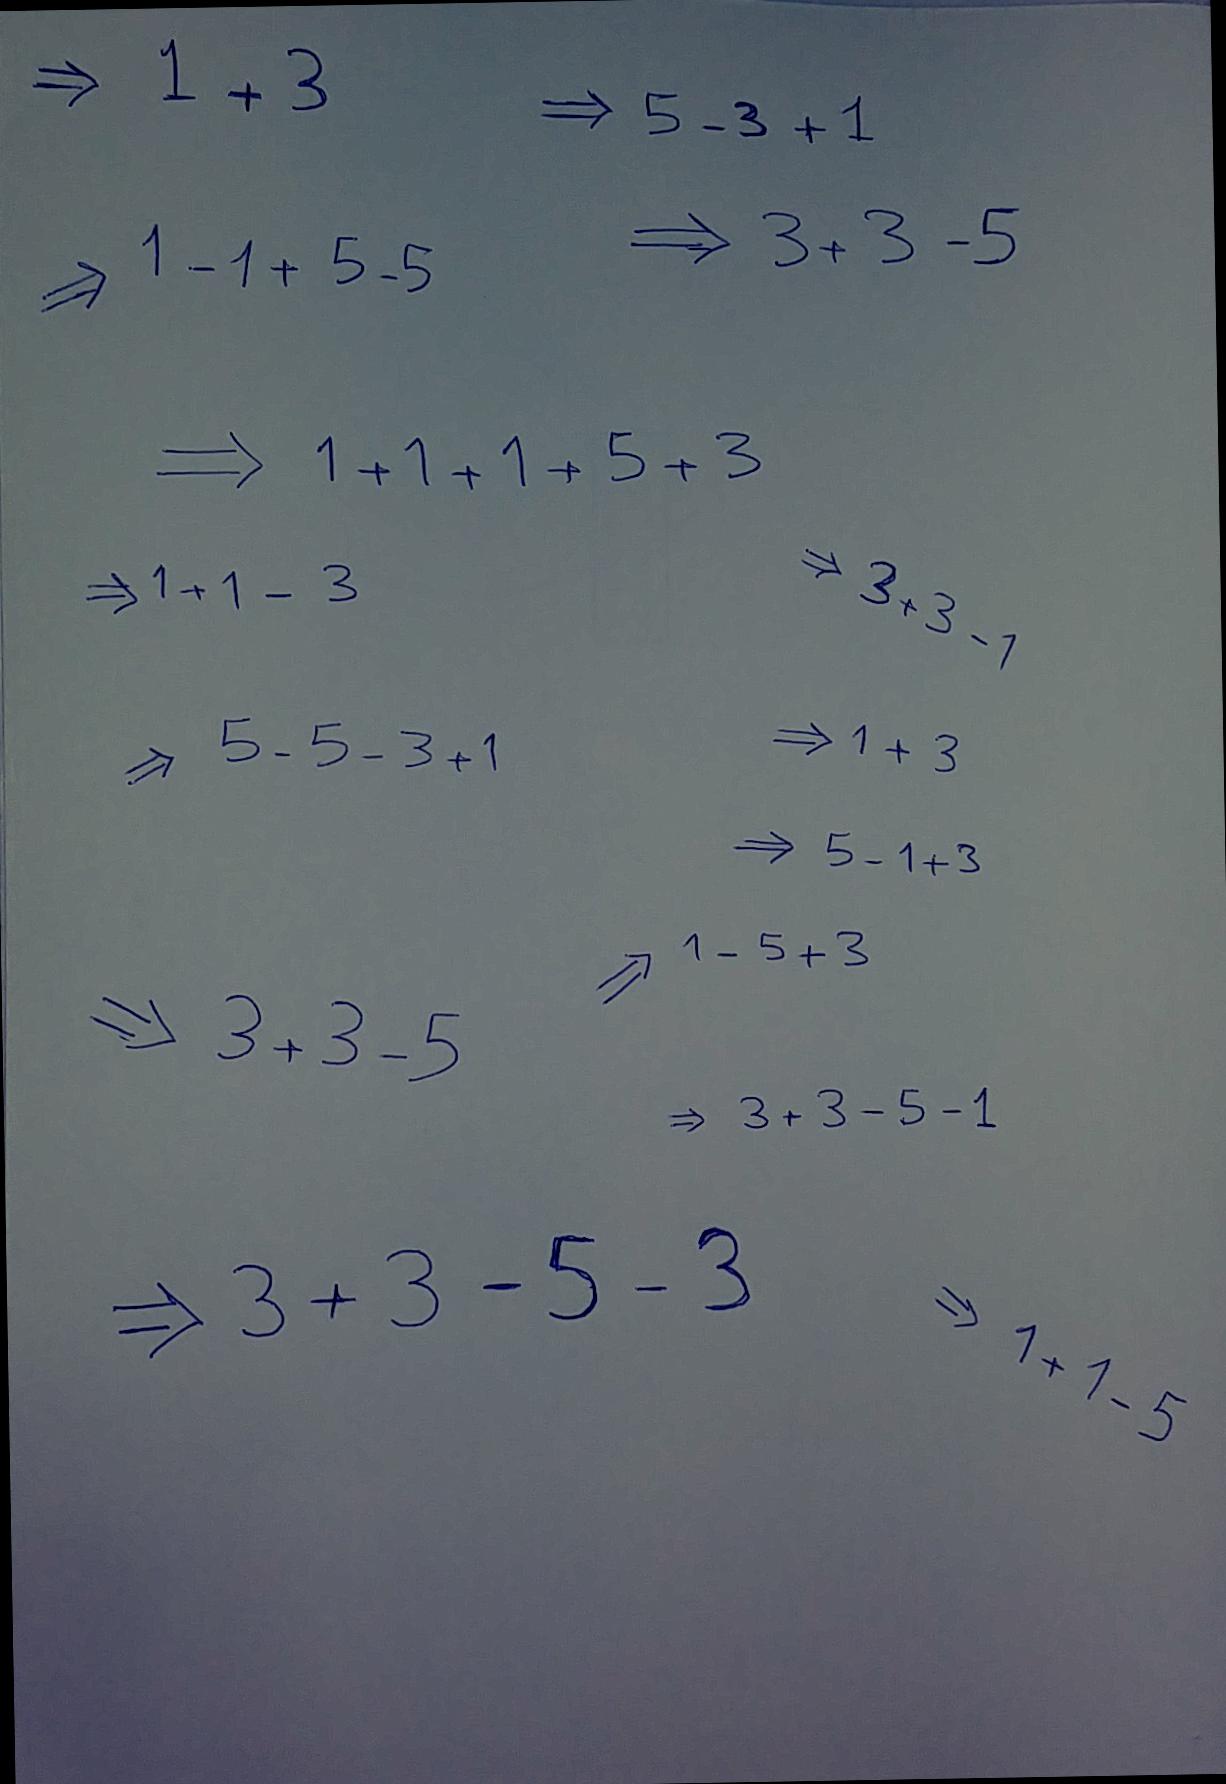 ⇒ 1 + 3
⇒ 5 - 3 + 1
⇒ 1 - 1 + 5 - 5
⇒ 3 + 3 - 5
⇒ 1 + 1 + 1 + 5 + 3
⇒ 1 + 1 - 3
⇒ 3 + 3 - 1
⇒ 5 - 5 - 3 + 1
⇒ 1 + 3
⇒ 5 - 1 + 3
⇒ 1 - 5 + 3
⇒ 3 + 3 - 5
⇒ 3 + 3 - 5 - 1
⇒ 3 + 3 - 5 - 3
⇒ 1 + 1 - 5